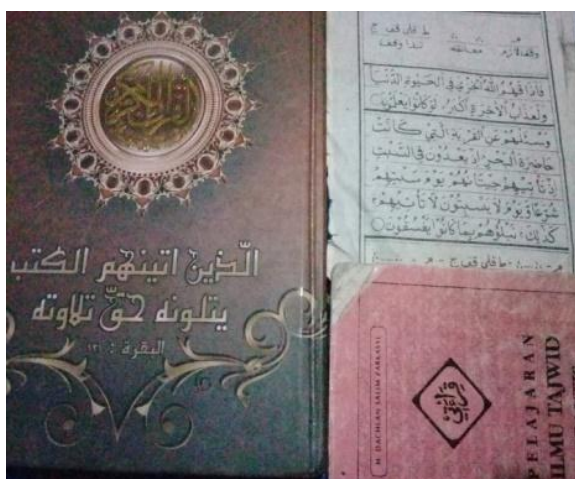 القرآن الكريم
الّذين اتينهم الكتب
يتلونه حقّ تلاوته
البقرة : ١٢١
ط قلى قف ج
وقف لازم معانقه
فَاَذَاقَهُمُ اللهُ الْخِزْيَ فِي الْحَيٰوةِ الدُّنْيَا
وَلَعَذَابُ الْاٰخِرَةِ اَكْبَرُ لَوْ كَانُوْا يَعْلَمُوْنَ
وَسْئَلْهُمْ عَنِ الْقَرْيَةِ الَّتِيْ كَانَتْ
حَاضِرَةَ الْبَحْرِ اِذْ يَعْدُوْنَ فِي السَّبْتِ
اِذْ تَأْتِيْهِمْ حِيْتَانُهُمْ يَوْمَ سَبْتِهِمْ
شُرَّعًا وَّيَوْمَ لَا يَسْبِتُوْنَ لَا تَأْتِيْهِمْ
كَذٰلِكَ نَبْلُوْهُمْ بِمَا كَانُوْا يَفْسُقُوْنَ
ط قلى قف ج
H. DACHLAN SALIM ZARKASYI
قراءتي
PELAJARAN
ILMU TAJWID